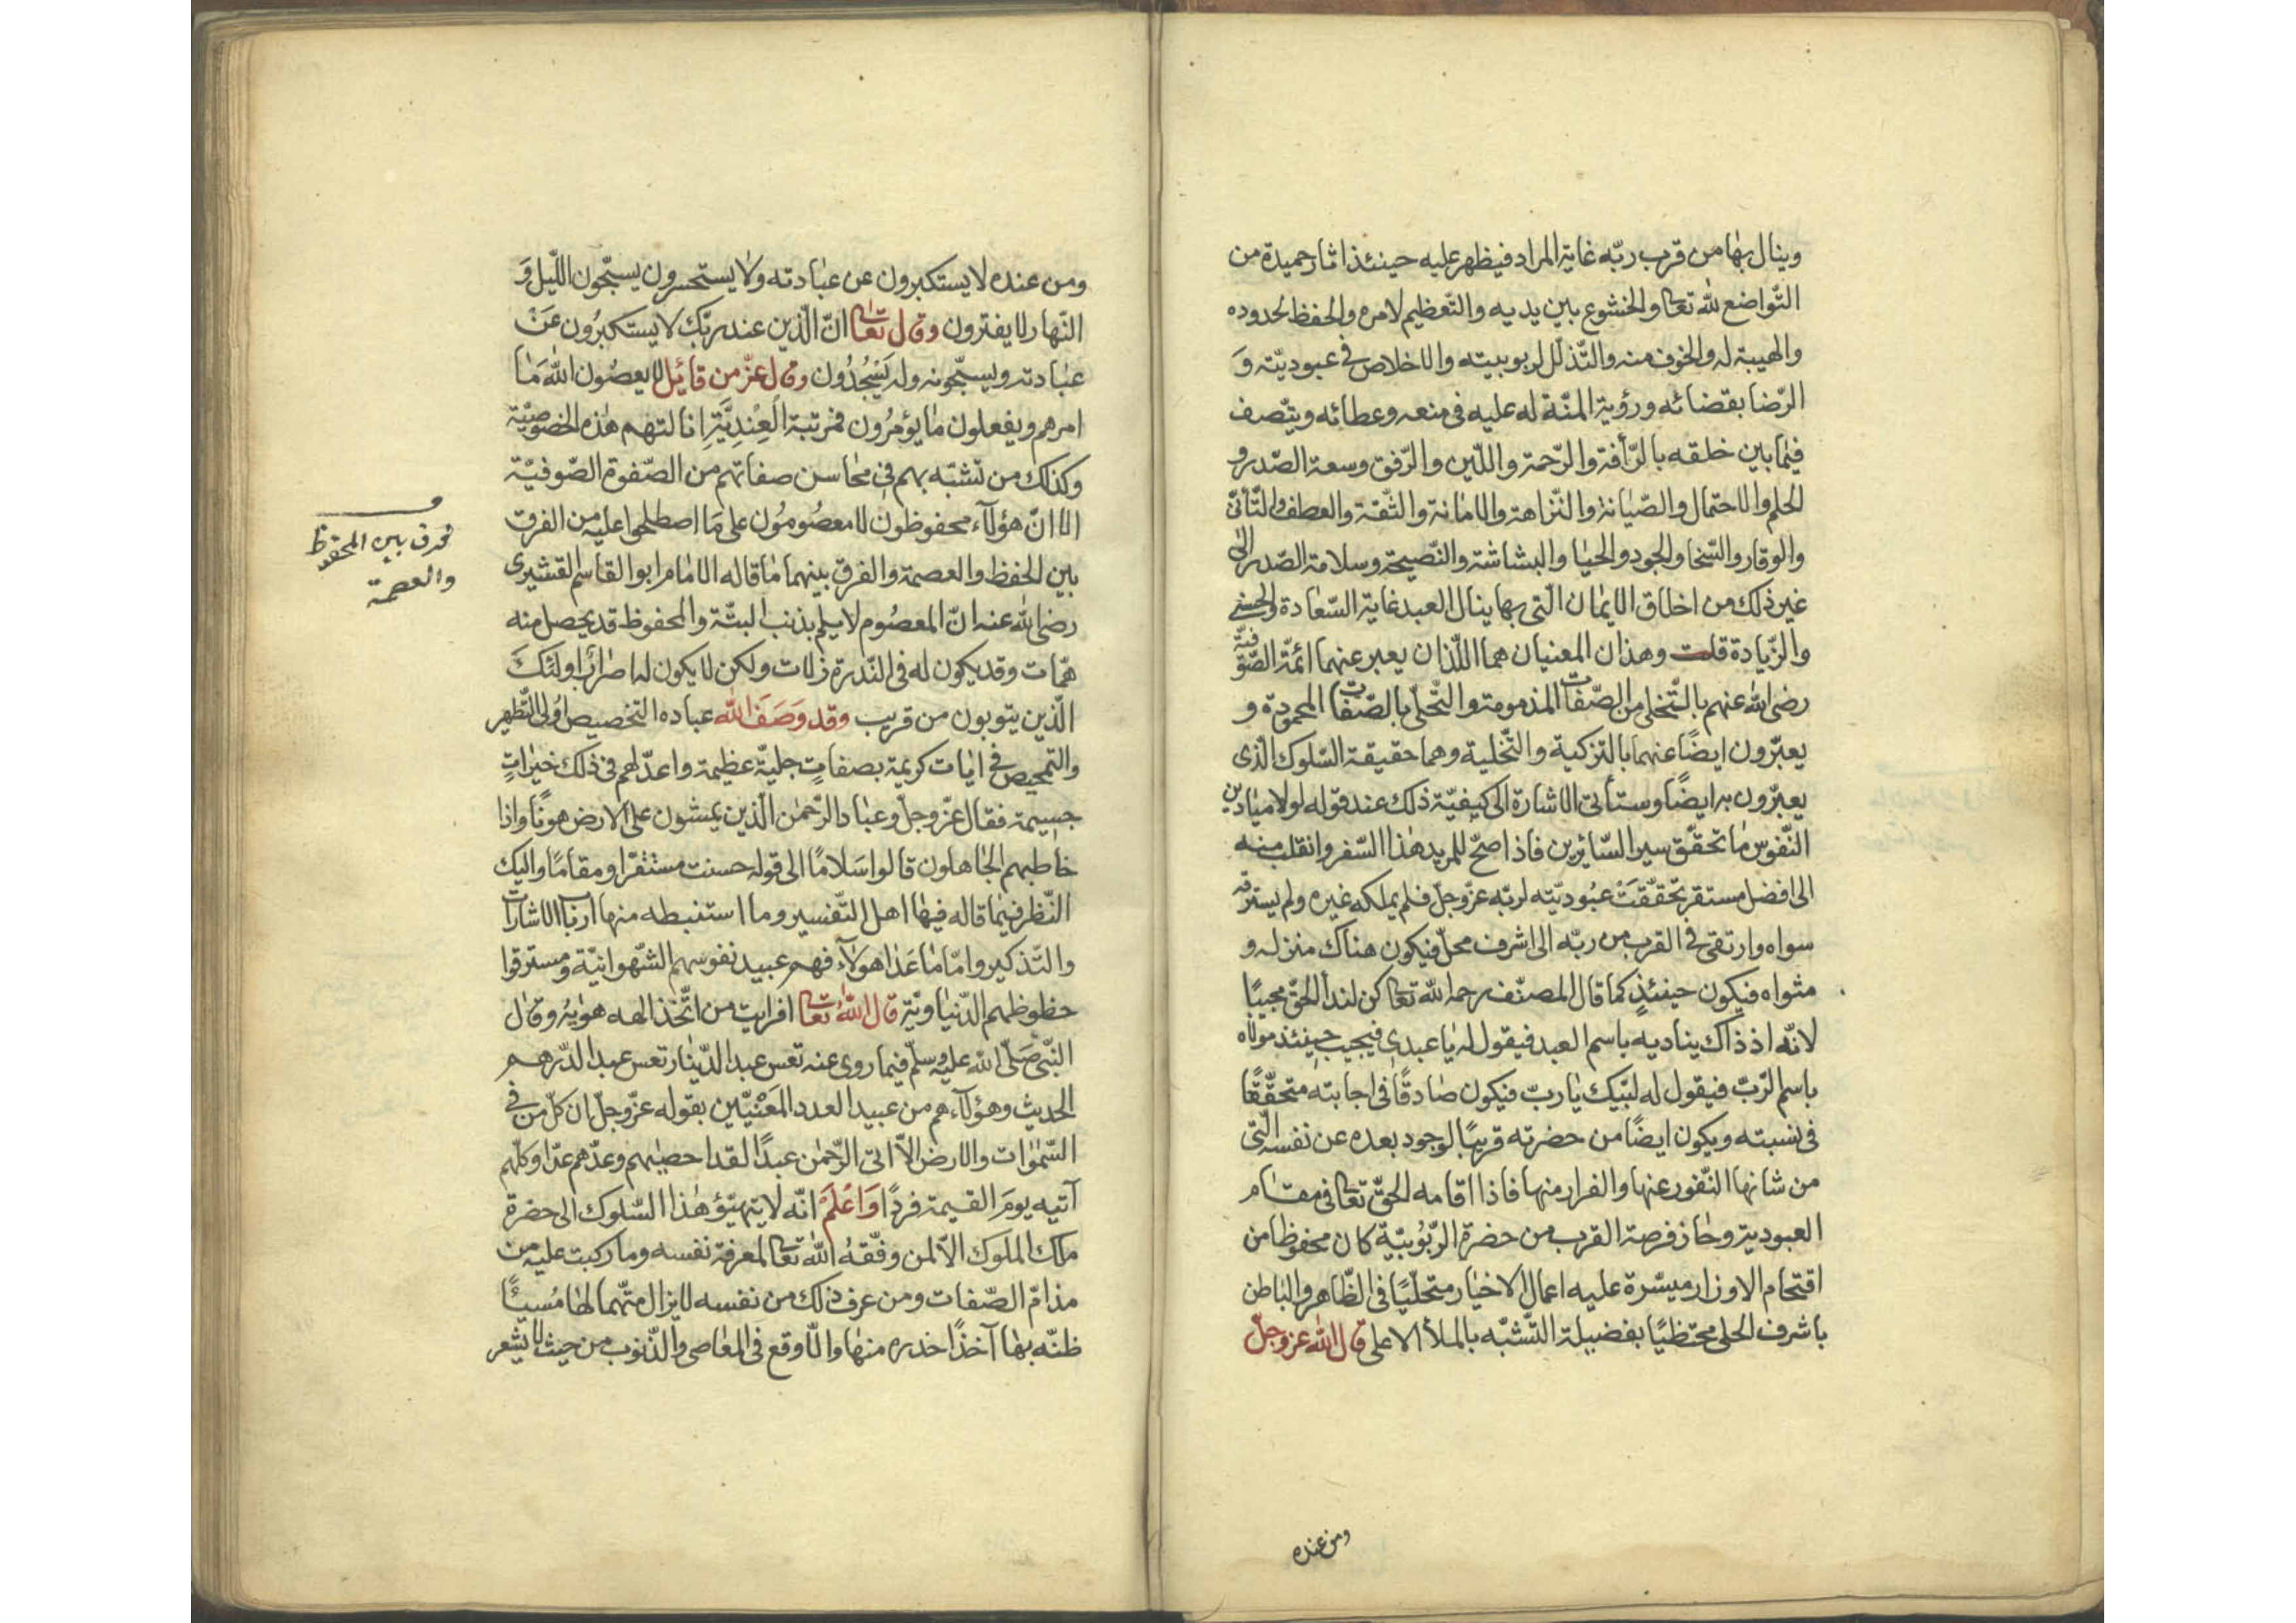 وينال بها من قرب ربّه غاية المراد فيظهر عليه حينئذ اثار حميدة من
التّواضع لله تعالى والخشوع بين يديه والتّعظيم لامره والحفظ لحدوده
والهيبة له والخوف منه والتّذلّل لربوبيته والاخلاص فى عبوديّته وَ
الرّضا بقضائه ورؤية المنّة له عليه فى منعه وعطائه ويتّصف
فيما بين خلقه بالرّأفة والرّحمة واللّين والرّفق وسعة الصّدر و
الحلم والاحتمال والصّيانة والنّزاهة والامانة والثّقة والعطف والتّأنّى
والوقار والسّخا والجود والحيا والبشاشة والنّصيحة وسلامة الصّدر الى
غير ذلك من اخلاق الايمان الّتى بها ينال العبد غاية السّعادة والحسنى
والزّيادة قلت وهذان المعنيان هما اللّذان يعبر عنهما ائمّة الصّوفيّة
رضى الله عنهم بالتّخلى من الصّفات المذمومة والتّحلّى بالصّفات المحمودة و
يعبّرون ايضًا عنهما بالتزكية والتّحلية وهما حقيقة السّلوك الّذى
يعبّرون به ايضًا وستأتى الاشارة الى كيفيّة ذلك عند قوله لولا ميادين
النّفوس ما تحقّق سير السّائرين فاذا صحّ للمريد هٰذا السّفر وانقلب منه
الى افضل مستقر تحقّقَتْ عبُوديّته لربّه عزّ وجلّ فلم يملكه غيره ولم يسترقّه
سواه وارتقى فى القرب من ربّه الى اشرف محلّ فيكون هناك منزله و
مثواه فيكون حينئذٍ كما قال المصنّف رحمه الله تعالى كن لندأ الحقّ مجيبًا
لانّه اذ ذاك يناديه باسم العبد فيقول له يا عبدى فيجيب حينئذ مولاه
باسم الرّبّ فيقول له لبّيك يا ربّ فيكون صادقًا فى اجابته متحقّقًا
فى نسبته ويكون ايضًا من حضرته قريبًا لوجود بعده عن نفسه الّتى
من شانها النّفور عنها والفرار منها فاذا اقامه الحقّ تعالى فى مقام
العبودية وحاز فرصة القرب من حضرة الرّبُوبيّة كان محفوظا من
اقتحام الاوزار ميسّرة عليه اعمال الاخيار متحلّيًا فى الظّاهر والباطن
باشرف الحلى محتظيًا بفضيلة التّشبّه بالملأ الاعلى قال الله عزّ وجلّ
ومن عنده
ومن عنده لا يستكبرون عن عبادته ولا يستحسرون يسبّحون اللّيل وَ
النّهار لا يفترون وقال تعالى انّ الّذين عند ربّك لا يستكبرُون عَنْ
عبادته ويسبّحونه وله يَسْجُدُون وقال عزّ من قائِل لا يعصُون الله مَا
امرهم ويفعلون ما يؤمرُون فمرتبة العِنْدِيَّةِ انالتهم هٰذه الخصوصيّة
وكذلك من تشبّه بهم فى محاسن صفاتهم من الصّفوة الصّوفيّة
الا انّ هؤلآء محفوظون لا معصُومُون على مَا اصطلحوا عليه من الفرق
بين الحفظ والعصمة والفرق بينهما ما قاله الامام ابو القاسم القشيرى
رضى الله عنه انّ المعصُوم لا يلم بذنب البتّة والمحفوظ قد يحصل منه
همّات وقد يكون له فى النّدرة زلات ولكن لا يكون له اصرارٌ اولئكَ
الّذين يتوبون من قريب وقد وَصَفَ الله عباده التخصيص اولى التّطهر
والتّمحيص فى ايات كريمة بصفاتٍ جليّة عظيمة واعدّ لهم فى ذلك خيراتٍ
جسيمة فقال عزّ وجلّ وعباد الرّحمٰن الّذين يمشون على الارض هونًا واذا
خاطبهم الجاهلون قالوا سَلامًا الى قوله حسنت مستقرّا ومقامًا واليك
النّظر فيما قاله فيها اهل التّفسير وما استنبطه منها ارباب الاشارات
والتّذكير وامّا ما عَدا هولآء فهم عبيد نفوسهم الشّهوانيّة ومسترقوا
حظوظهم الدّنياويّة قال اللهُ تعالى افرايت من اتّخذ الهه هوٰيهُ وقال
النّبىّ صَلّى الله عليه وسلّم فيما روى عنه تعس عبد الدّينار تعس عبد الدّرهم
الحديث وهؤلآء هم من عبيد العدد المَعْنيّين بقوله عزّ وجلّ ان كلّ من فى
السّمٰوات والارض الاّ اتى الرّحمٰن عبدًا لقد احصيٰهم وعدّهم عدّا وكلّهم
آتيه يومَ القيمة فردًا وَاعْلَمْ انّه لا يتهيّؤ هٰذا السّلوك الى حضرة
ملك الملوك الاّ لمن وفّقهُ الله تعالى لمعرفة نفسه وما ركبت عليه من
مذامّ الصّفات ومن عرف ذلك من نفسه لا يزال متّهما لها مُسيئًا
ظنّه بها آخذًا حذره منها والّا وقع فى المعاصى والذّنوب من حيث لا يشعر
فرق بين المحفوظ
والعصمة